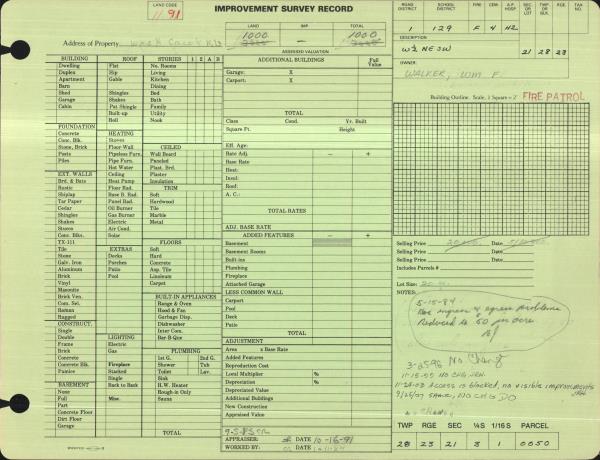 LAND CODE
11 91
IMPROVEMENT SURVEY RECORD
LAND IMP TOTAL
1000 1000
ASSESSED VALUATION
Address of Property
ROAD DISTRICT SCHOOL DISTRICT FIRE CEM. A.P. HOSP SEC OR LOT TWP OR BLK RGE TAX
1 129 F 4 H2
DESCRIPTION
W½ NESW 21 28 23
OWNER
WALKER, WM F.
Building Outline. Scale, 1 Square = 2' FIRE PATROL
BUILDING ROOF STORIES 1 2 A B
Dwelling Flat No. Rooms
Duplex Hip Living
Apartment Gable Kitchen
Barn Dining
Shed Shingles Bed
Garage Shakes Bath
Cabin Pat. Shingle Family
Built-up Utility
Roll Hook
FOUNDATION
Concrete HEATING
Conc. Blk. Stoves CEILED
Stone, Brick Floor Wall Wall Board
Posts Pipeless Furn. Plast. Brd.
Piles Pipe Furn. Paneled
Hot Water Plast. Brd.
EXT. WALLS Ceiling Plaster
Brd. & Bats Heat Pump Insulation
Rustic Floor Rad. TRIM
Shiplap Base B. Rad. Soft
Tar Paper Panel Rad. Hardwood
Cedar Oil Burner Tile
Shingles Gas Burner Marble
Shakes Electric Metal
Stucco Air Cond.
Conc. Blks. Solar FLOORS
TX-111 Soft
Tile EXTRAS Hard
Stone Decks Concrete
Galv. Iron Porches Asp. Tile
Aluminum Patio Linoleum
Brick Pool Carpet
Vinyl
Masonite
Brick Ven. BUILT-IN APPLIANCES
Com. Sel. Range & Oven
Roman Hood & Fan
Ragged Garbage Disp.
CONSTRUCT. Dishwasher
Single Inter Com.
Double LIGHTING Bar-B-Que
Frame Electric
Brick Gas PLUMBING
Concrete 1st G. 2nd G.
Concrete Blk. Fireplace Shower Tub
Pumice Stacked Toilet Lav.
Single Sink
BASEMENT Back to Back H.W. Heater
None Rough-in Only
Full Misc. Sauna
Part
Concrete Floor
Dirt Floor
Garage TOTAL
ADDITIONAL BUILDINGS Full Value
Garage: X
Carport: X
TOTAL
Class Cond. Yr. Built
Square Ft. Height
Eff. Age:
Rate Adj. − +
Base Rate
Heat:
Insul:
Roof:
A. C.:
TOTAL RATES
ADJ. BASE RATE
ADDED FEATURES − +
Basement
Basement Rooms
Built-ins
Plumbing
Fireplace
Attached Garage
LESS COMMON WALL
Carport
Pool
Deck
Patio
TOTAL
ADJUSTMENT
Area x Base Rate
Added Features
Reproduction Cost
Local Multiplier %
Depreciation %
Depreciated Value
Additional Buildings
New Construction
Appraised Value
APPRAISER: DATE 10-16-91
WORKED BY: DATE
Selling Price Date
Selling Price Date
Includes Parcels #
Lot Size:
NOTES:
5-15-84
Has ingress & egress problems
Reduced to 50 per acre
3-25-96 No Change
11-15-95 NO CHG
11-24-03 Access is blocked, no visible improvements
9/25/07 SAME, NO CHG DO
TWP RGE SEC ¼S 1/16 S PARCEL
28 23 21 3 1 0050